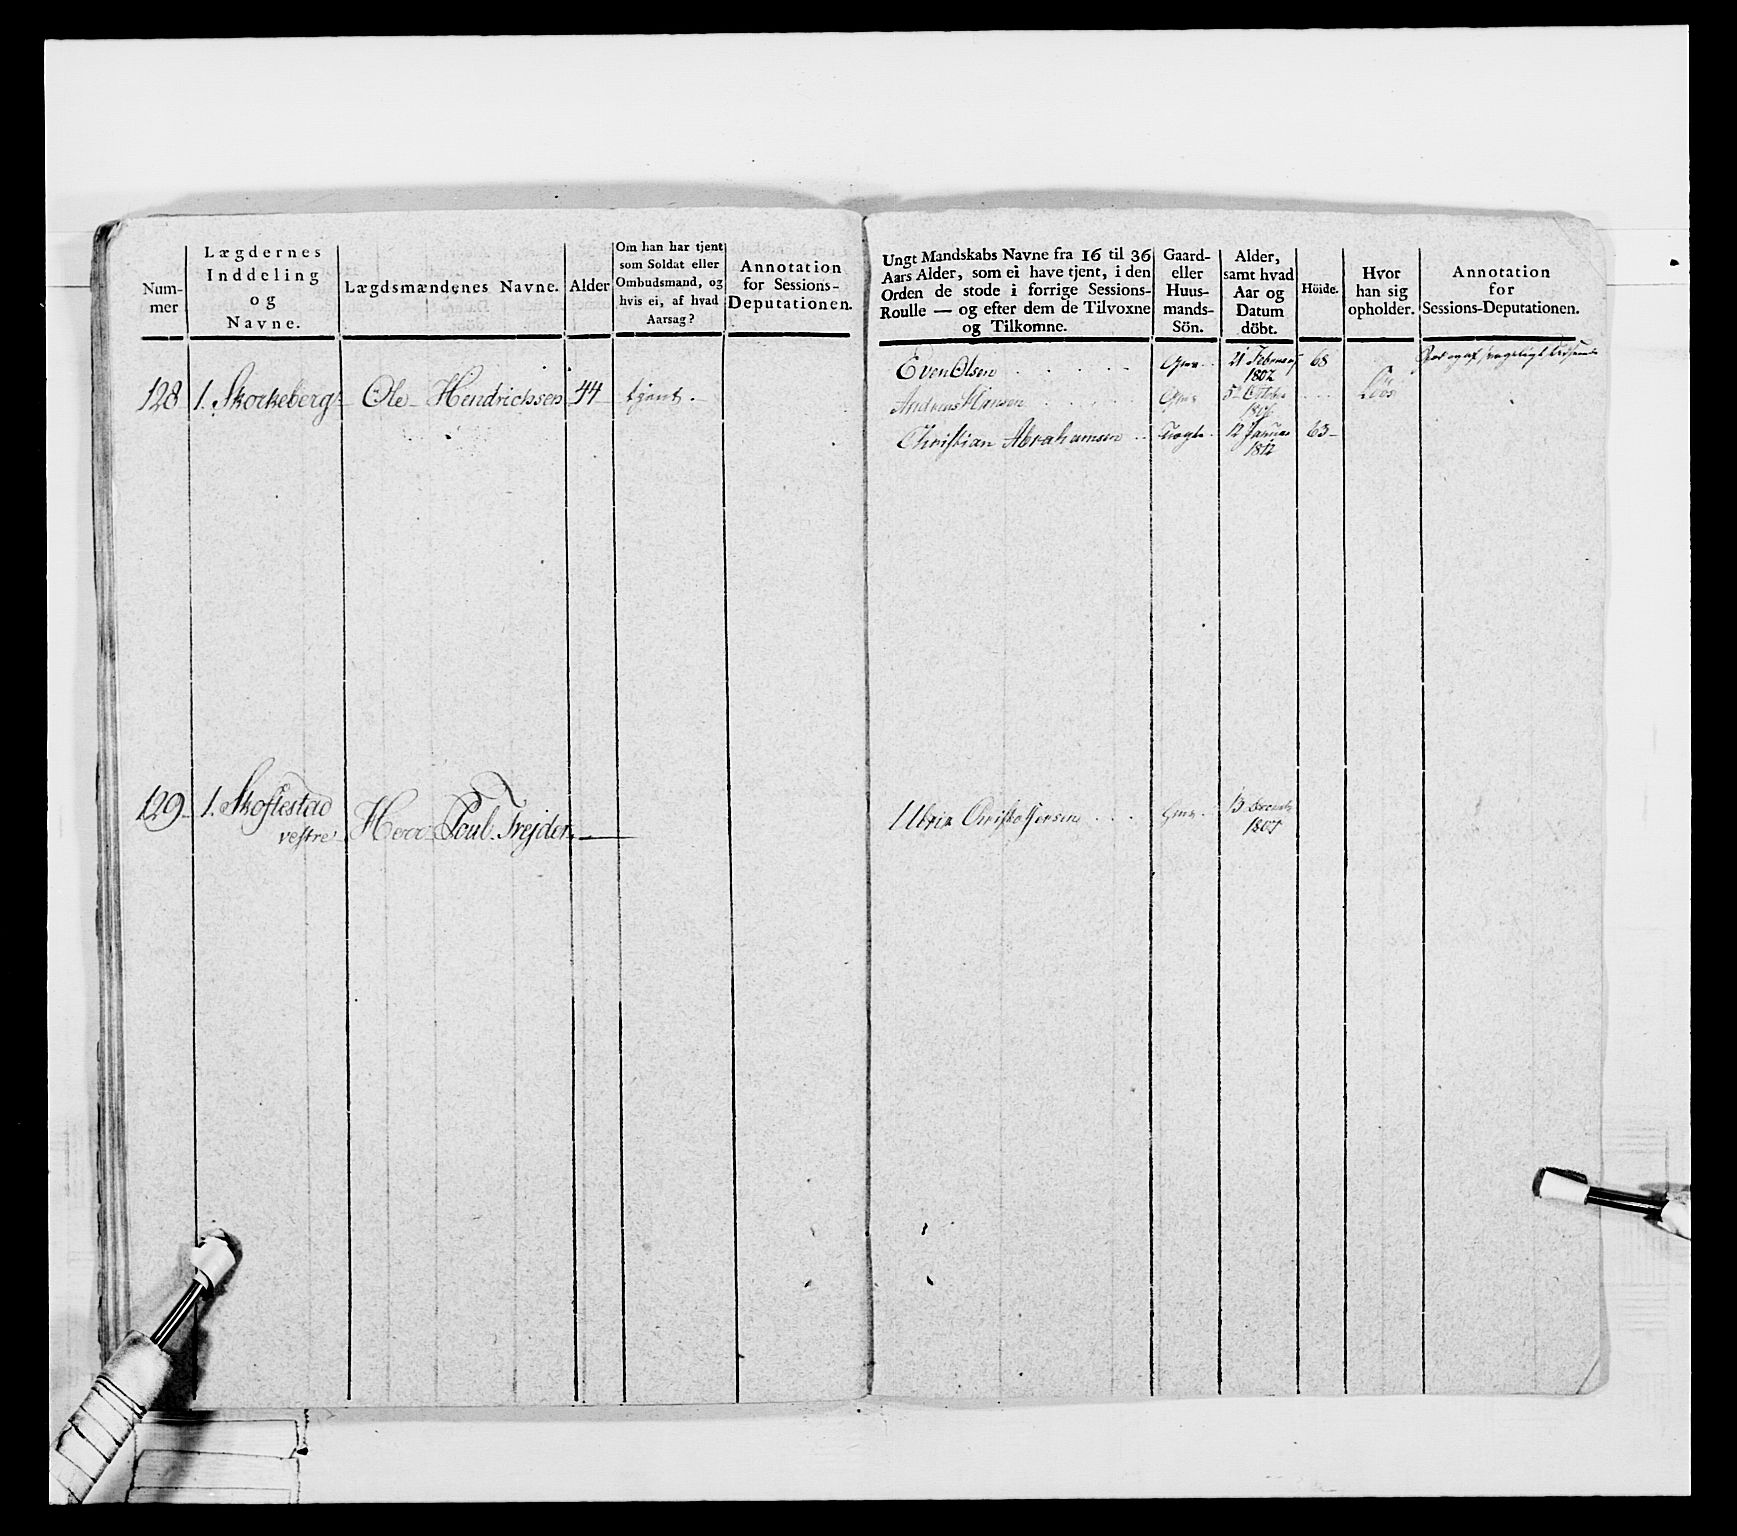 Num-
mer
Lægdernes
Inddeling
og
Navne.
Lægdsmændenes Navne.
Alder
Om han har tjent
som Soldat eller
Ombudsmand, og
hvis ei, af hvad
Aarsag?
Annotation
for Sessions-
Deputationen.
128 1. Skockeberg Ole Hendrichsen 44 tjent.
129 1. Skoftestad
vestre Herr Poul Trejder
Ungt Mandskabs Navne fra 16 til 36
Aars Alder, som ei have tjent, i den
Orden de stode i forrige Sessions-
Roulle — og efter dem de Tilvoxne
og Tilkomne.
Gaard-
eller
Huus-
mands-
Sön.
Alder,
samt hvad
Aar og
Datum
döbt.
Höide.
Hvor
han sig
opholder.
Annotation
for
Sessions-Deputationen.
Even Olsen 21 Februar 68
1802
Andreas Hansen 5 October
Christian Abrahamsen 12 Januar 63
1812
Christophersen 13
1807